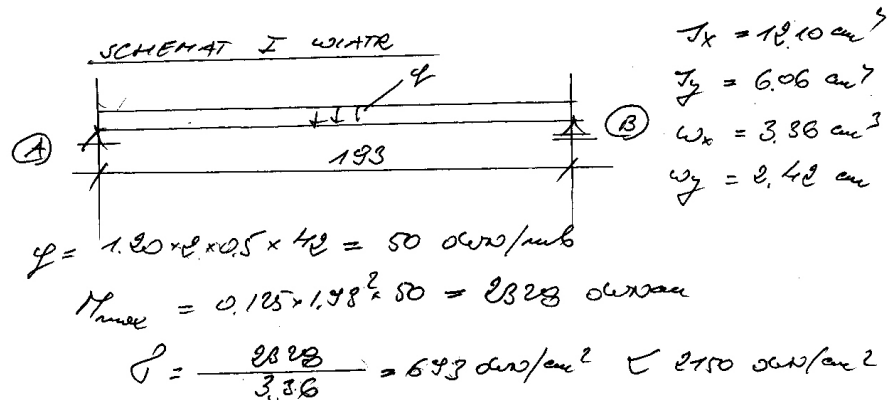 SCHEMAT I WIATR
q
A
B
193
Jx = 12.10 cm⁴
Jy = 6.06 cm⁴
Wx = 3.36 cm³
Wy = 2.42 cm
q = 1.20×2×0.5×42 = 50 daN/mb
Mmax = 0.125×1.93²×50 = 2328 daNcm
σ = 2328 / 3.36 = 693 daN/cm² < 2150 daN/cm²